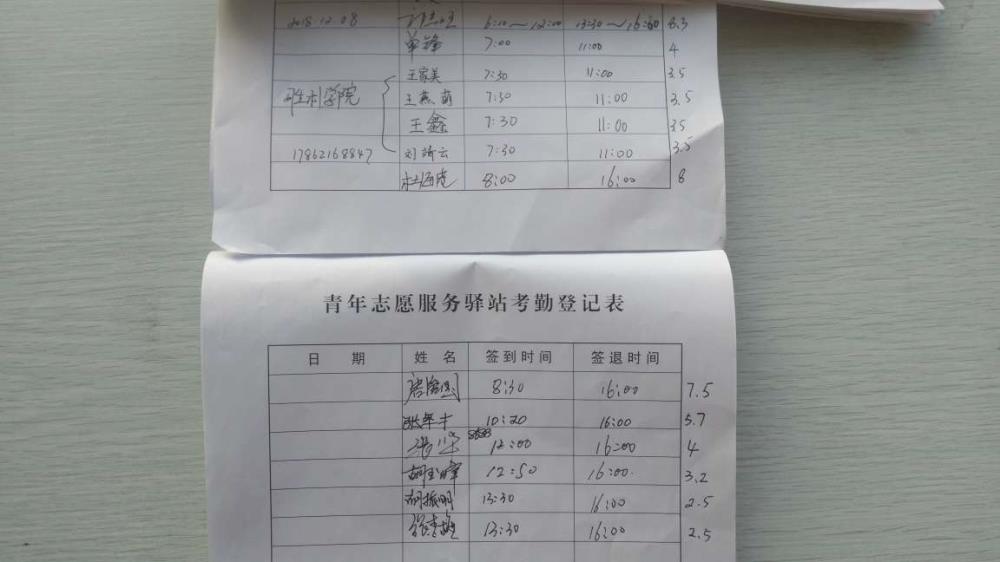 2018.12.08 6:10~12:00 13:30~16:60 8.3
单锋 7:00 11:00 4
王家美 7:30 11:00 3.5
胜利学院 王燕萌 7:30 11:00 3.5
王鑫 7:30 11:00 3.5
17862168847 刘 云 7:30 11:00 3.5
8:00 16:00 8
青年志愿服务驿站考勤登记表
日 期 姓 名 签到时间 签退时间
8:30 16:00 7.5
10:20 16:00 5.7
12:00 16:00 4
胡玉峰 12:50 16:00 3.2
胡振明 13:30 16:00 2.5
13:30 16:00 2.5